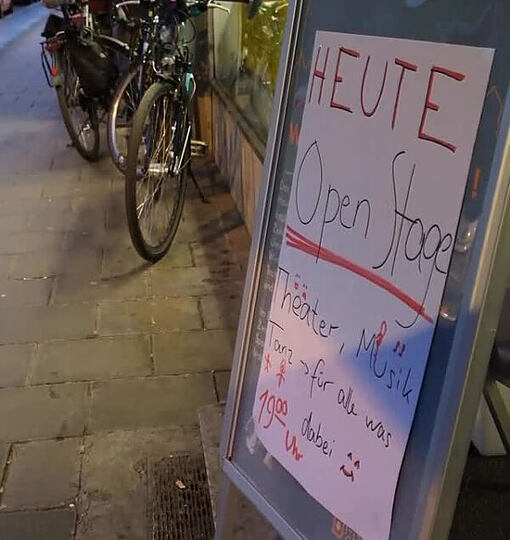 HEUTE
Open Stage
Theater, Musik
Tanz → für alle was
19⁰⁰ dabei
Uhr